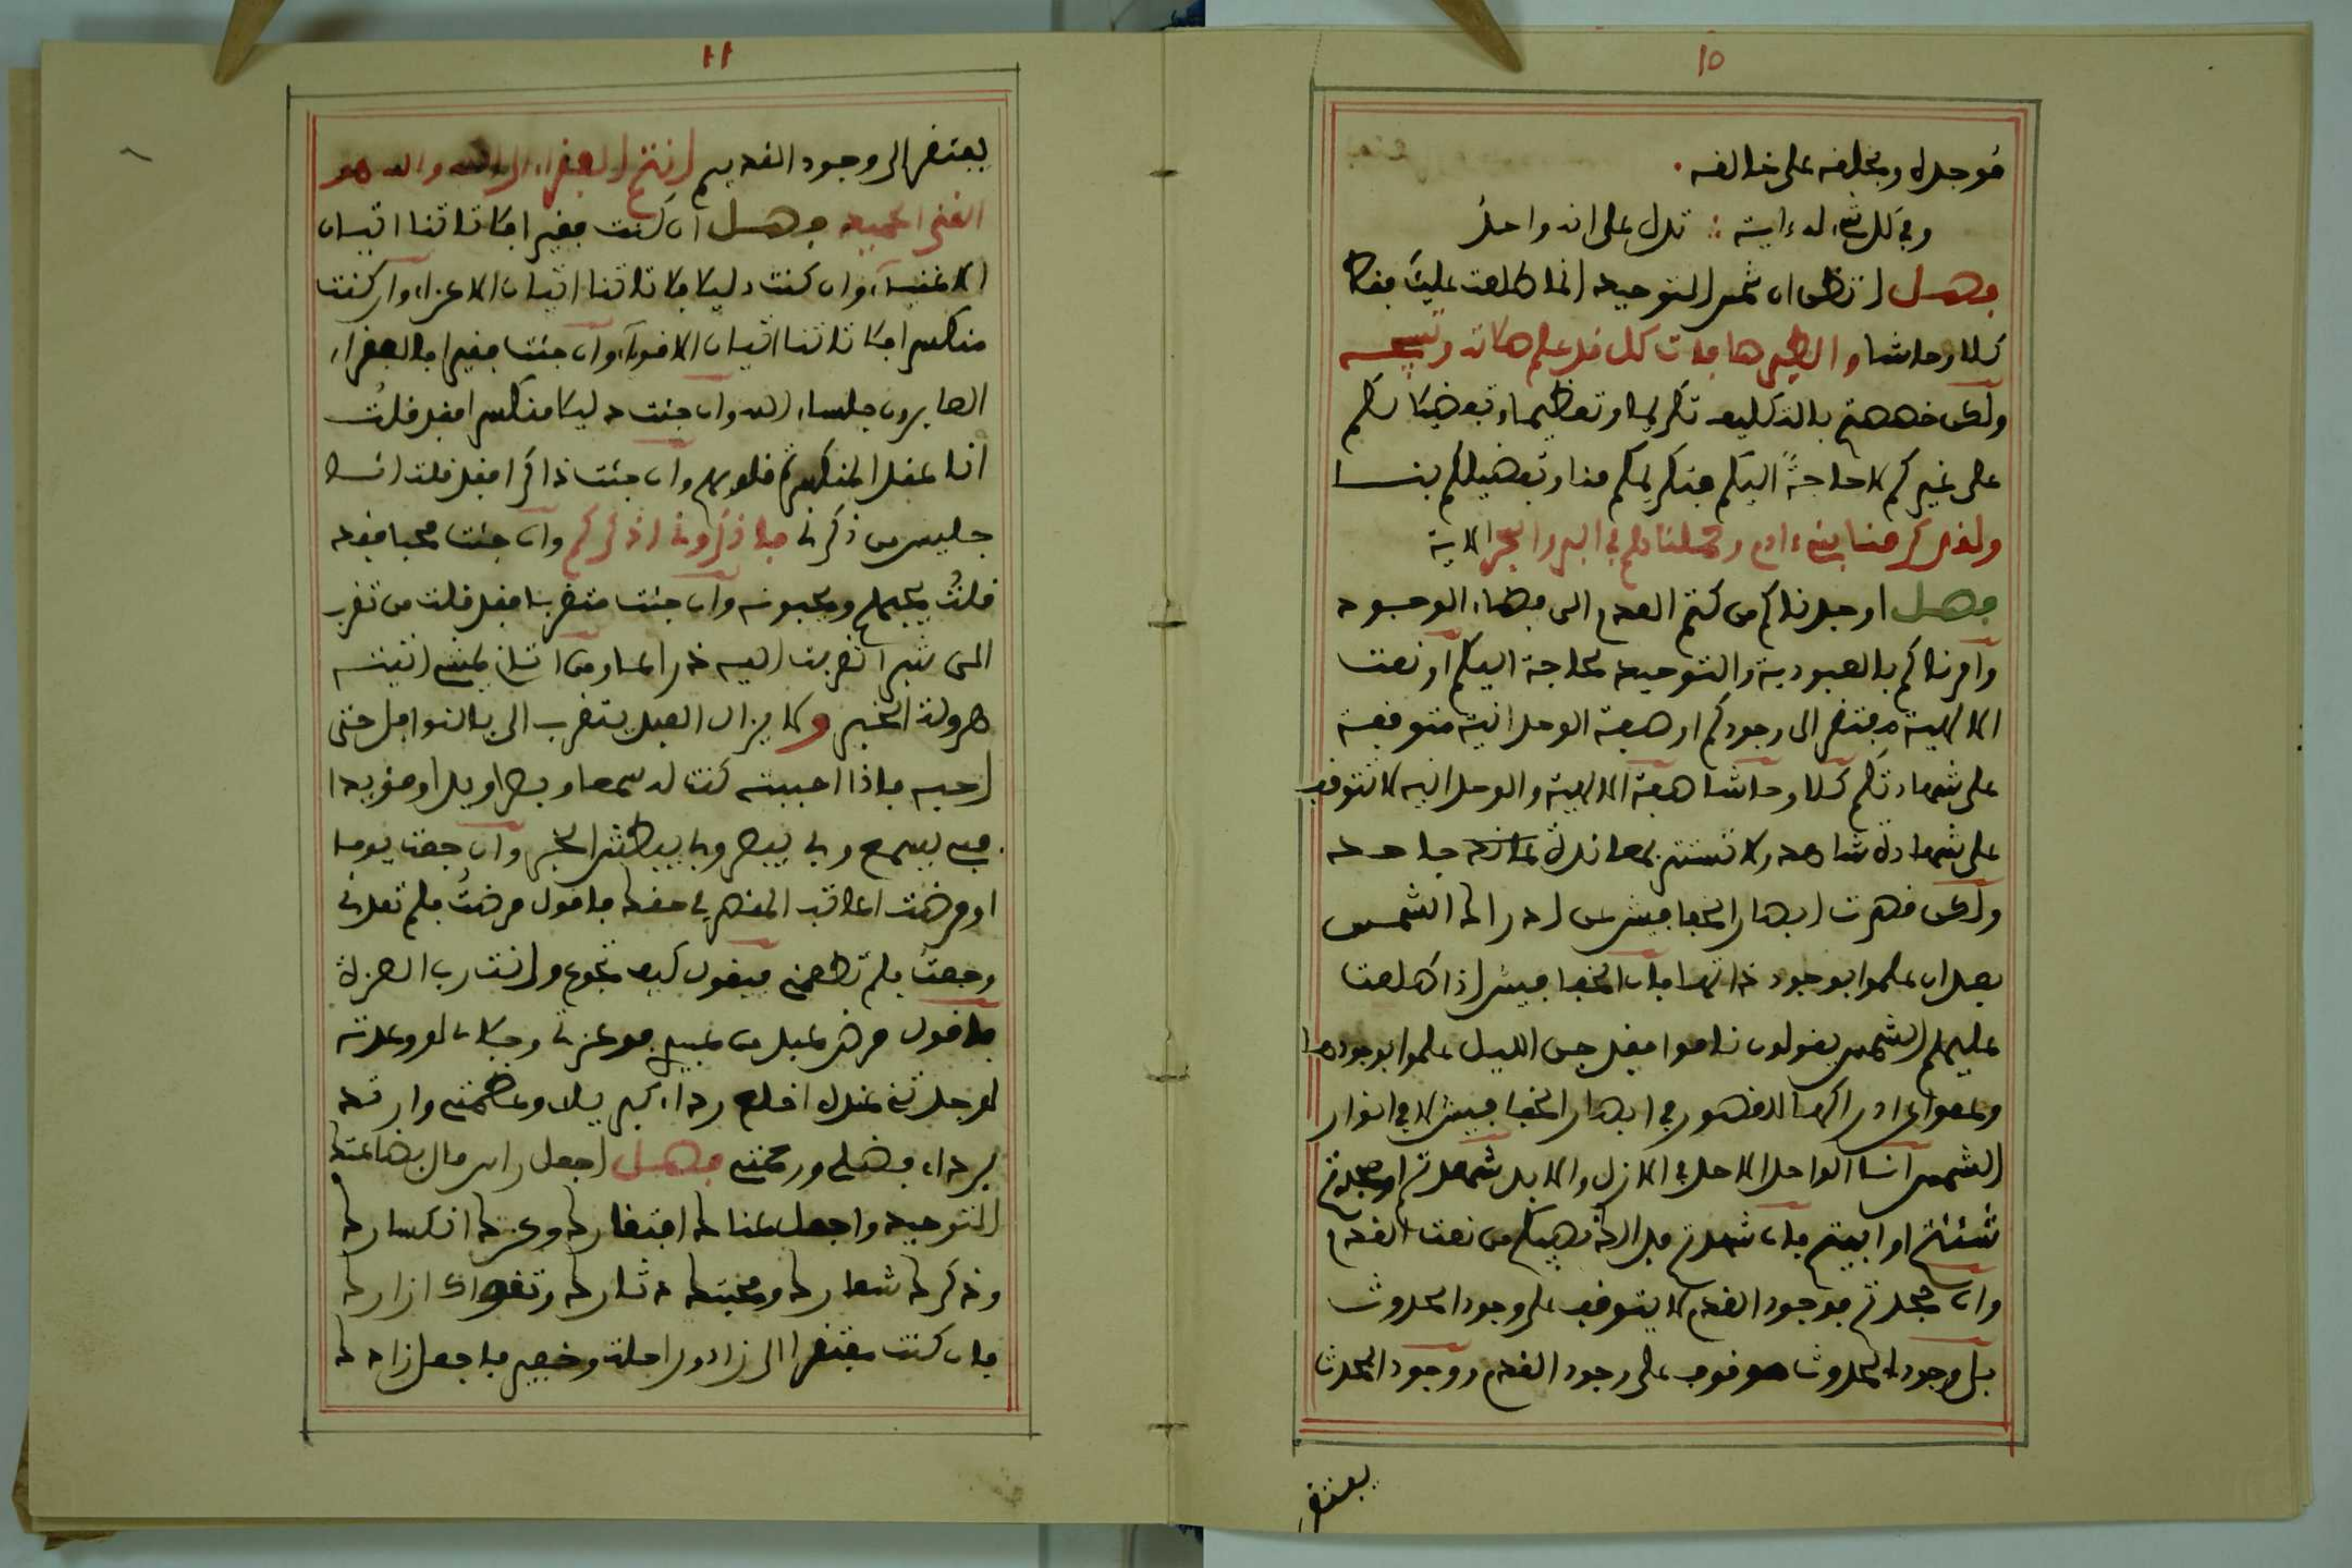 ١٥
فوحده ومخالفه على خالفه.
وفي كل شيء له ءاية ∴ تدل على انه واحد
فصل اتظن ان شمس التوحيد انما طلعت عليك فقط
كلا وحاشا والطير صافات كل قد علم صلاته وتسبيحه
ولكن خصصتم بالتكليف تكريما وتعظيما وتفضيلا لكم
على غيركم لا حاجة اليكم فتكريمكم منا وتفضيلكم بنا
ولقد كرمنا بني ءادم وحملناهم في البر والبحر الاية
فصل اوجدناكم من كتم العدم الى فضاء الوجود
وامرناكم بالعبودية والتوحيد لحاجة اليكم او نعت
الالهية مفتقر الى وجودكم او صفة الوحدانية متوقفة
على شهادتكم كلا وحاشا صفة الالهية والوحدانية لا تتوقف
على شهادة شاهد ولا تستتر بمعاندة جاحد
ولكن قصرت ابصار الخفافيش عن ادراك الشمس
بعد ان علموا بوجود ذاتها فان الخفافيش اذا طلعت
عليهم الشمس يقولون ناموا فقد جن الليل علموا بوجودها
وعموا عن ادراكها لقصور في ابصار الخفافيش لا في انوار
الشمس انا الواحد الاحد في الازل والابد شهدتم او جحدتم
شئتم او ابيتم فان شهدتم فذلك نصيبكم من نعت القدم
وان جحدتم فوجود القدم لا يتوقف على وجود الحدوث
بل وجود الحدوث موقوف على وجود القدم ووجود المحدث
يفتقر
١٦
يفتقر الى وجود القديم انتم الفقراء الى الله والله هو
الغني الحميد فصل ان كنت فقيرا فلا تاتنا اتيان
الاغنياء وان كنت ذليلا فلا تاتنا اتيان الاعزاء وان كنت
منكسرا فلا تاتنا اتيان الاقوياء وان جئت فقيرا فالفقراء
الصابرون جلساء الله وان جئت ذليلا منكسرا فقد قلت
انا عند المنكسرة قلوبهم وان جئت ذاكرا فقد قلت انا
جليس من ذكرني فاذكروني اذكركم وان جئت محبا فقد
قلت يحبهم ويحبونه وان جئت متقربا فقد قلت من تقرب
الي شبرا تقربت اليه ذراعا ومن اتاني يمشي اتيته
هرولة الخبر ولا يزال العبد يتقرب الي بالنوافل حتى
احبه فاذا احببته كنت له سمعا وبصرا ويدا ومؤيدا
فبي يسمع وبي يبصر وبي يبطش الخبر وان جعت يوما
او مرضت اعاتب المقصر في حقك فاقول مرضت فلم تعدني
وجعت فلم تطعمني فيقول كيف تجوع وانت رب العزة
فاقول مرض عبدي من عبيدي فوعزتي وجلالي لو وعدته
لوجدتني عنده اخلع رداء كبريائي وعظمتي وارتد
برداء فضلي ورحمتي فصل اجعل راس مال بضاعتك
التوحيد واجعل غناك افتقارك وعزك انكسارك
وذكرك شعارك ومحبتك دثارك وتقواك ازارك
فان كنت مفتقرا الى زاد وراحلة وخفير فاجعل زادك